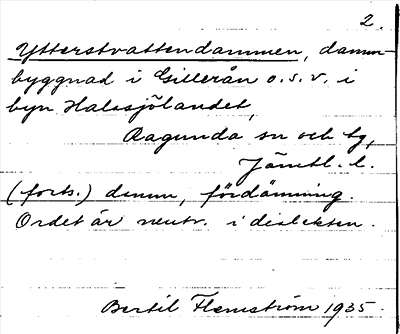 2.
Ytterstvattendammen, damm-
byggnad i Gillerån o.s.v. i
byn Halasjölandet,
Ragunda sn och tg,
Jämtl. l.
(forts.) damm, fördämning.
Ordet är neutr. i dialekten.
Bertil Flemström 1935.